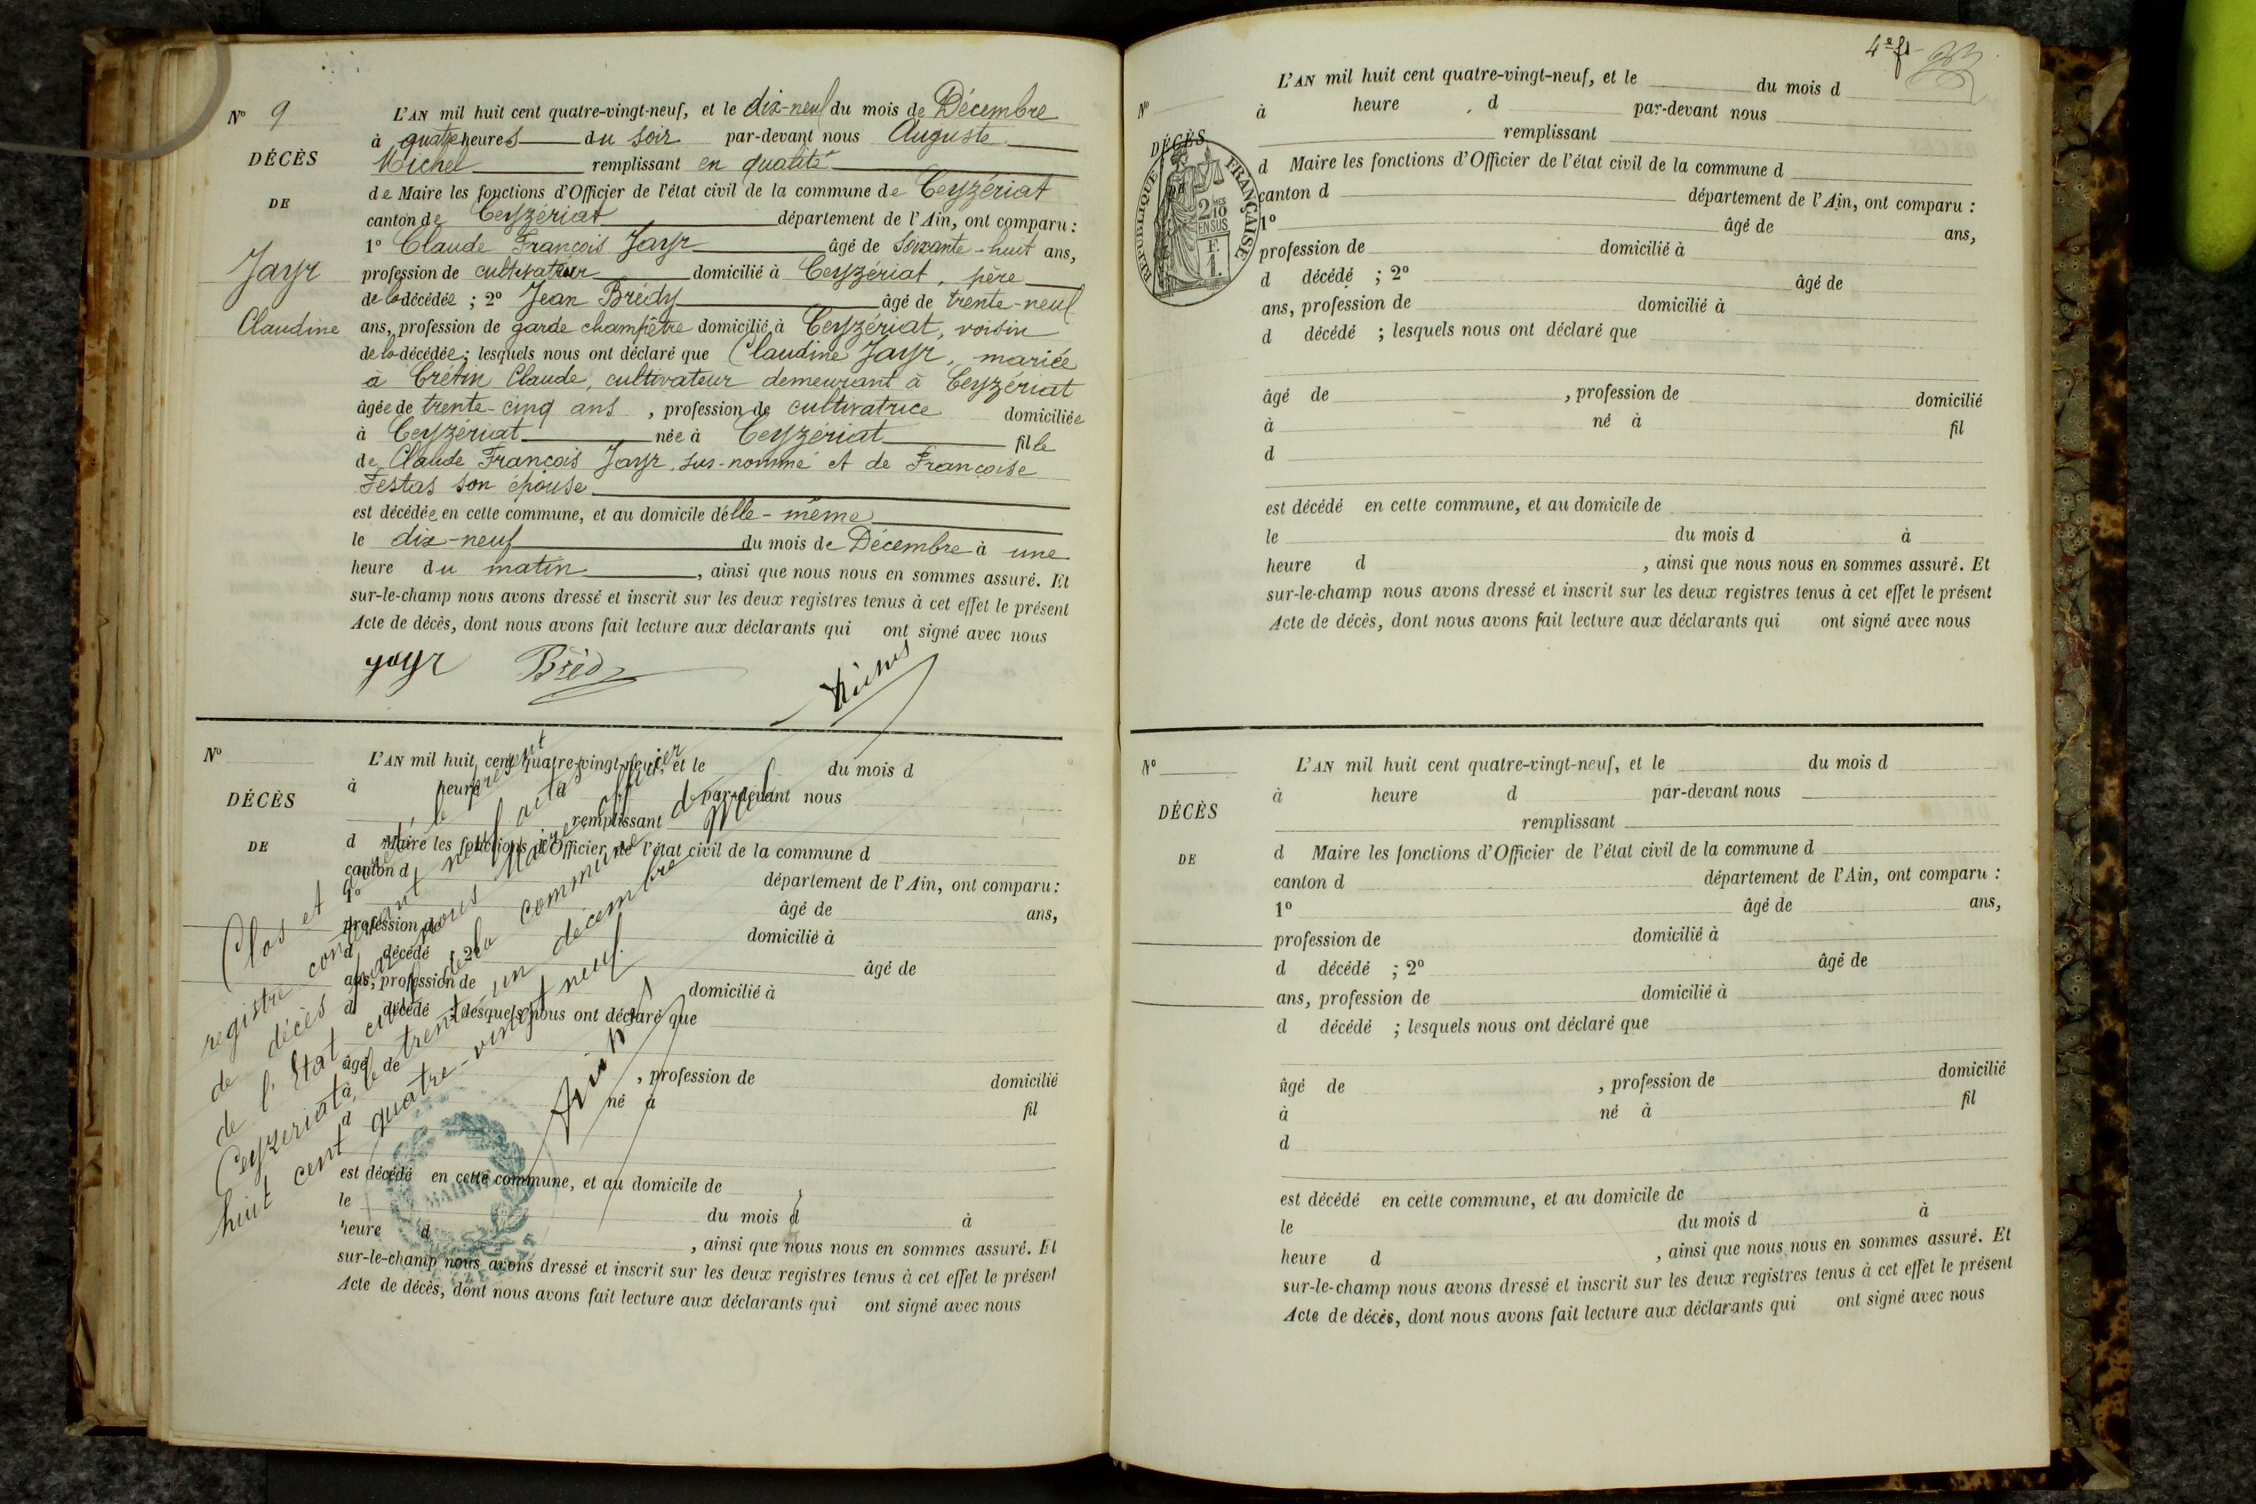 No 9
DÉCÈS
DE
Jayr
Claudine
L'AN mil huit cent quatre-vingt-neuf, et le dix-neuf du mois de Décembre
à quatre heures du soir par-devant nous Auguste
Michel remplissant en qualité
de Maire les fonctions d'Officier de l'état civil de la commune de Ceyzériat
canton de Ceyzériat département de l'Ain, ont comparu :
1o Claude François Jayr âgé de soixante-huit ans,
profession de cultivateur domicilié à Ceyzériat, père
de la décédée ; 2o Jean Brédy âgé de trente-neuf
ans, profession de garde champêtre domicilié à Ceyzériat, voisin
de la décédée ; lesquels nous ont déclaré que Claudine Jayr, mariée
à Crétin Claude, cultivateur demeurant à Ceyzériat
âgée de trente-cinq ans , profession de cultivatrice domiciliée
à Ceyzériat née à Ceyzériat fille
de Claude François Jayr, sus-nommé et de Françoise
Festas son épouse
est décédée en cette commune, et au domicile d'elle-même
le dix-neuf du mois de Décembre à une
heure du matin , ainsi que nous nous en sommes assuré. Et
sur-le-champ nous avons dressé et inscrit sur les deux registres tenus à cet effet le présent
Acte de décès, dont nous avons fait lecture aux déclarants qui ont signé avec nous
Jayr Brédy Michel
No
DÉCÈS
DE
L'AN mil huit cent quatre-vingt-neuf, et le du mois d
à heure d par-devant nous
remplissant
d Maire les fonctions d'Officier de l'état civil de la commune d
canton d département de l'Ain, ont comparu :
1o âgé de ans,
profession de domicilié à
d décédé ; 2o âgé de
ans, profession de domicilié à
d décédé ; lesquels nous ont déclaré que
âgé de , profession de domicilié
à né à fil
d
est décédé en cette commune, et au domicile de
le du mois d à
heure d , ainsi que nous nous en sommes assuré. Et
sur-le-champ nous avons dressé et inscrit sur les deux registres tenus à cet effet le présent
Acte de décès, dont nous avons fait lecture aux déclarants qui ont signé avec nous
Clos et arrêté le présent
registre contenant neuf actes
de décès par nous Maire, officier
de l'Etat civil de la commune de
Ceyzériat, le trente-un décembre mil
huit cent quatre-vingt neuf.
MAIRIE
4e f
No
DÉCÈS
RÉPUBLIQUE FRANÇAISE
2/10 EN SUS
F.
1.
L'AN mil huit cent quatre-vingt-neuf, et le du mois d
à heure d par-devant nous
remplissant
d Maire les fonctions d'Officier de l'état civil de la commune d
canton d département de l'Ain, ont comparu :
1o âgé de ans,
profession de domicilié à
d décédé ; 2o âgé de
ans, profession de domicilié à
d décédé ; lesquels nous ont déclaré que
âgé de , profession de domicilié
à né à fil
d
est décédé en cette commune, et au domicile de
le du mois d à
heure d , ainsi que nous nous en sommes assuré. Et
sur-le-champ nous avons dressé et inscrit sur les deux registres tenus à cet effet le présent
Acte de décès, dont nous avons fait lecture aux déclarants qui ont signé avec nous
No
DÉCÈS
DE
L'AN mil huit cent quatre-vingt-neuf, et le du mois d
à heure d par-devant nous
remplissant
d Maire les fonctions d'Officier de l'état civil de la commune d
canton d département de l'Ain, ont comparu :
1o âgé de ans,
profession de domicilié à
d décédé ; 2o âgé de
ans, profession de domicilié à
d décédé ; lesquels nous ont déclaré que
âgé de , profession de domicilié
à né à fil
d
est décédé en cette commune, et au domicile de
le du mois d à
heure d , ainsi que nous nous en sommes assuré. Et
sur-le-champ nous avons dressé et inscrit sur les deux registres tenus à cet effet le présent
Acte de décès, dont nous avons fait lecture aux déclarants qui ont signé avec nous